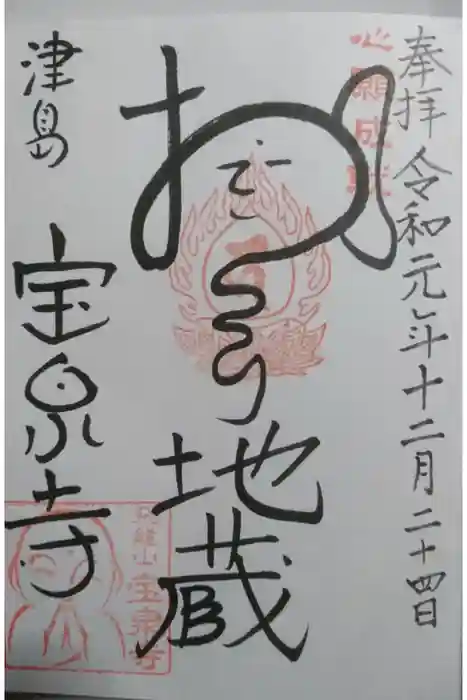 奉拝 令和元年十二月二十四日
心願成就
地蔵
津島 宝泉寺
宝泉寺